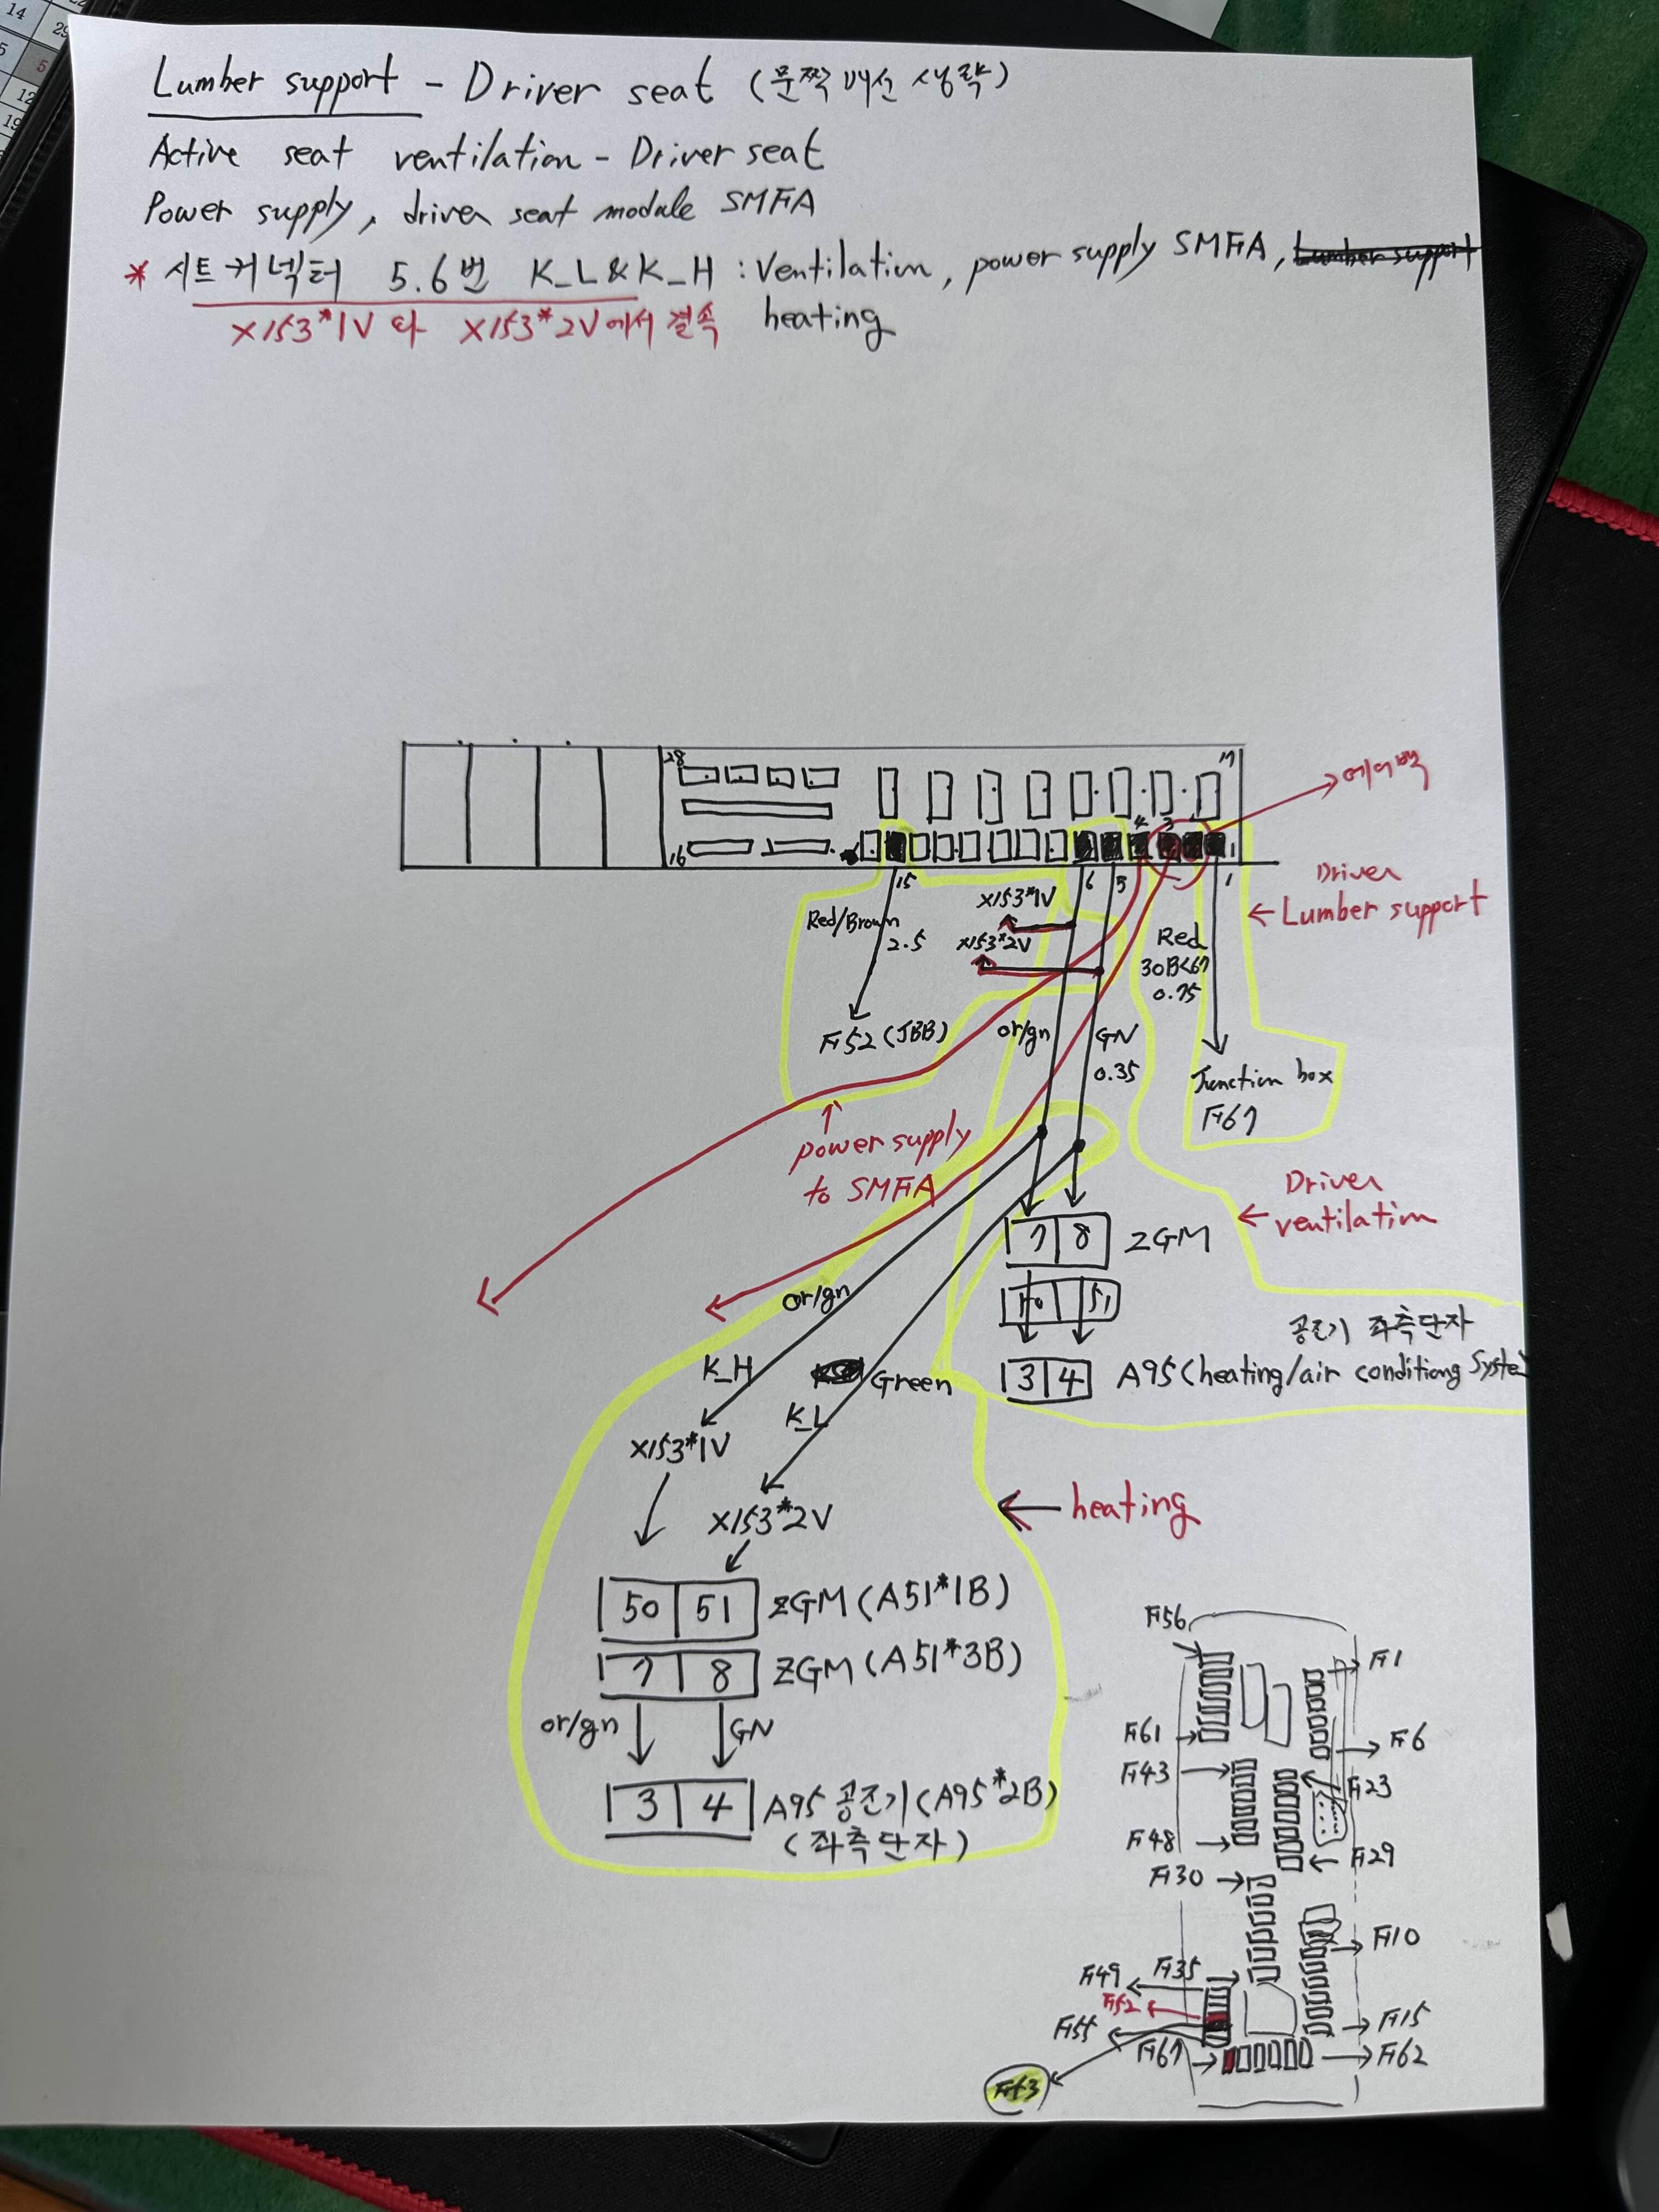 Lumber support - Driver seat (문짝 배선 생략)
Active seat ventilation - Driver seat
Power supply, driver seat module SMFA
* 시트커넥터 5.6번 K_L&K_H : Ventilation, power supply SMFA, Lumber support
X153*1V 와 X153*2V에서 결속 heating
28
17
에어백
4 3
16
1
15
6
5
1
Driver
Lumber support
X153*1V
Red/Brown
2.5
X153*2V
Red
30B<67
0.75
F52 (JBB)
or/gn
GN
0.35
Junction box
F67
power supply
to SMFA
Driver
ventilation
7 8 ZGM
51
or/gn
공조기 좌측단자
3 4 A95 (heating/air conditiong System
K_H
Green
K_L
X153*1V
X153*2V
heating
50 51 ZGM (A51*1B)
7 8 ZGM (A51*3B)
or/gn
GN
3 4 A95 공조기 (A95*2B)
(좌측단자)
F56
F1
F61
F6
F43
F23
F48
F29
F30
F10
F49
F35
F52
F55
F15
F67
F62
14
5
5
12
19